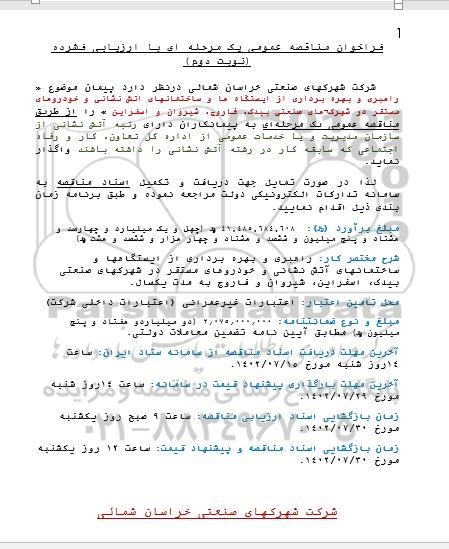 1
فراخوان مناقصه عمومی یک مرحله ای با ارزیابی فشرده
(نوبت دوم)
شرکت شهرکهای صنعتی خراسان شمالی درنظر دارد پیمان موضوع «
راهبری و بهره برداری از ایستگاه ها و ساختمانهای آتش نشانی و خودروهای
مستقر در شهرکهای صنعتی بیدک، فاروج، شیروان و اسفراین » را از طریق
مناقصه عمومی یک مرحله‌ای به پیمانکاران دارای رتبه آتش نشانی از
سازمان مدیریت و یا خدمات عمومی از اداره کل تعاون، کار و رفاه
اجتماعی که سابقه کار در رشته آتش نشانی را داشته باشند واگذار
نماید.
لذا در صورت تمایل جهت دریافت و تکمیل اسناد مناقصه به
سامانه تدارکات الکترونیکی دولت مراجعه نموده و طبق برنامه زمان
بندی ذیل اقدام نمایید.
مبلغ برآورد (ریال): ۴۱,۴۸۵,۶۸۴,۶۰۸ ریال (چهل و یک میلیارد و چهارصد و
هشتاد و پنج میلیون و ششصد و هشتاد و چهار هزار و ششصد و هشت ریال)
شرح مختصر کار: راهبری و بهره برداری از ایستگاهها و
ساختمانهای آتش نشانی و خودروهای مستقر در شهرکهای صنعتی
بیدک، اسفراین، شیروان و فاروج به مدت یکسال.
محل تامین اعتبار: اعتبارات غیرعمرانی (اعتبارات داخلی شرکت)
مبلغ و نوع ضمانتنامه: ۲,۰۷۵,۰۰۰,۰۰۰ (دو میلیاردو هفتاد و پنج
میلیون ریال) مطابق آیین نامه تضمین معاملات دولتی.
آخرین مهلت دریافت اسناد مناقصه از سامانه ستاد ایران: ساعت
۱۴روز شنبه مورخ ۱۴۰۲/۰۷/۱۵.
آخرین مهلت بارگذاری پیشنهاد قیمت در سامانه: ساعت ۱۴روز شنبه
مورخ ۱۴۰۲/۰۷/۲۹.
زمان بازگشایی اسناد ارزیابی مناقصه: ساعت ۹ صبح روز یکشنبه
مورخ ۱۴۰۲/۰۷/۳۰.
زمان بازگشایی اسناد مناقصه و پیشنهاد قیمت: ساعت ۱۲ روز یکشنبه
مورخ ۱۴۰۲/۰۷/۳۰.
شرکت شهرکهای صنعتی خراسان شمالی